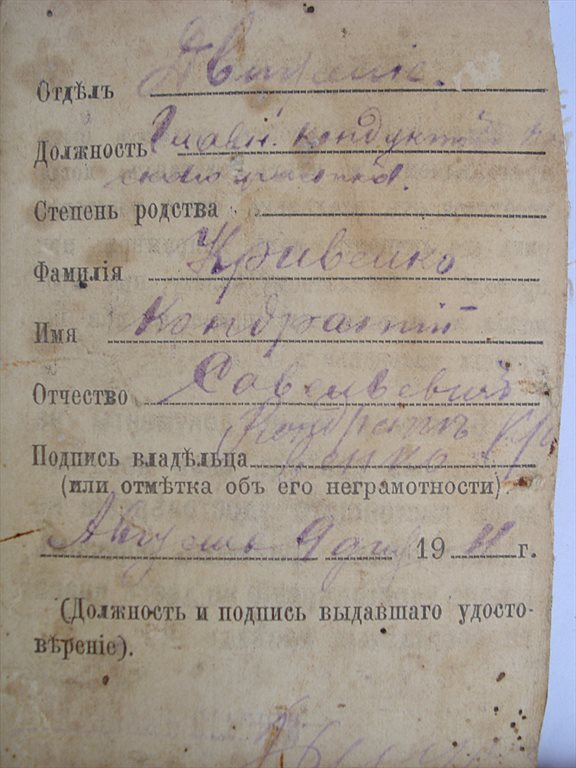 Отдѣлъ Движеніе.
Должность Главн. кондукт
Степень родства
Фамилія Кривенко
Имя Кондратій
Отчество Савельевичъ
Кондратъ Кри
Подпись владѣльца венко
(или отмѣтка объ его неграмотности)
Августъ 9 дня 1911 г.
(Должность и подпись выдавшаго удосто-
вѣреніе).